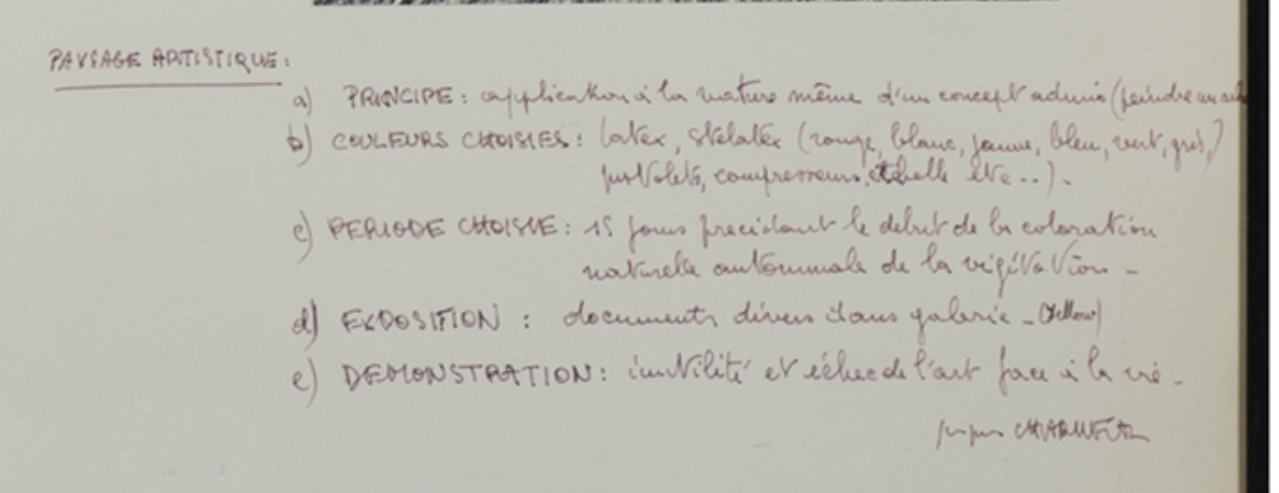 PAYSAGE ARTISTIQUE :
a) PRINCIPE : application à la nature même d'un concept admis (peindre un
b) COULEURS CHOISIES : latex, stelatex (rouge, blanc, jaune, bleu, vert, gris,)
pistolets, compresseurs, échelle etc...).
c) PERIODE CHOISIE : 15 jours precidant le debut de la coloration
naturelle automnale de la végétation -
d) EXPOSITION : documents divers dans galerie - (Yellow)
e) DEMONSTRATION : inutilité et échec de l'art face à la vie -